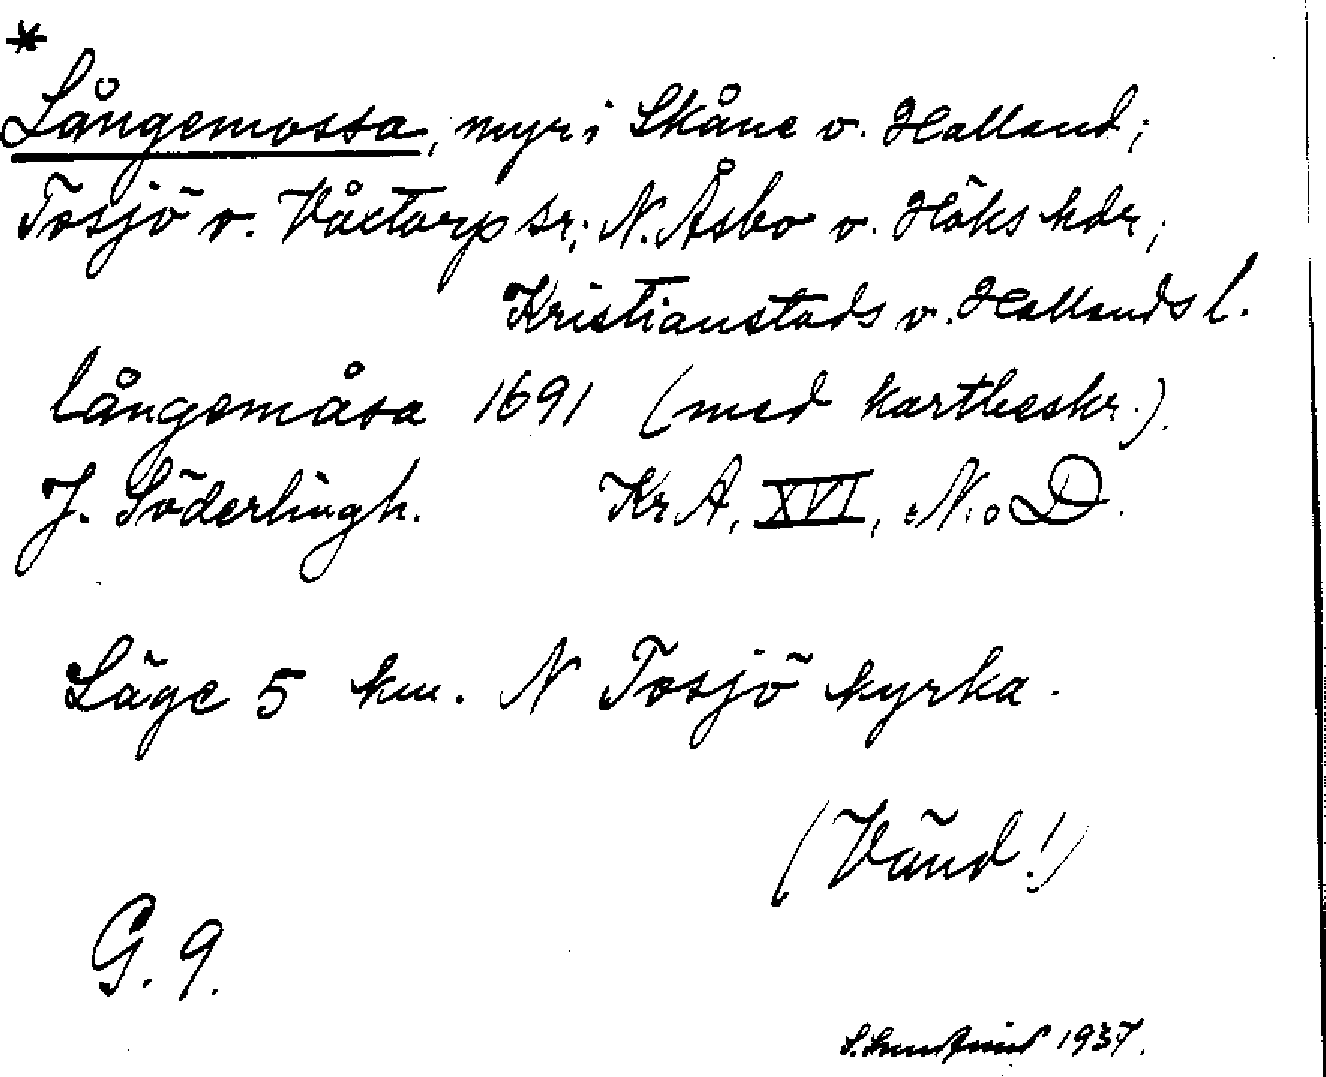 *
Långemossa, myr i Skåne o. Halland;
Tosjö o. Våxtorp sr; N. Åsbo o. Höks hdr;
Kristianstads o. Hallands l.
långemåsa 1691 (med kartbeskr.).
J. Söderlingh. Kr A, XVI, N:o D.
Läge 5 km. N Tosjö kyrka.
(Vänd!)
G. 9.
1937.